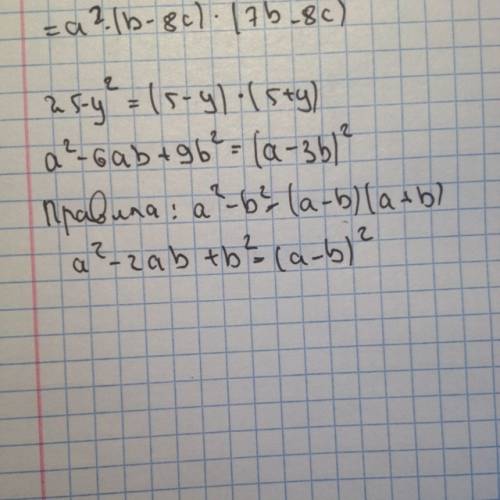 = a²·(b - 8c) · (7b - 8c)
25-y² = (5-y) · (5+y)
a² - 6ab + 9b² = (a - 3b)²
Правила: a² - b² = (a-b)(a+b)
a² - 2ab + b² = (a-b)²